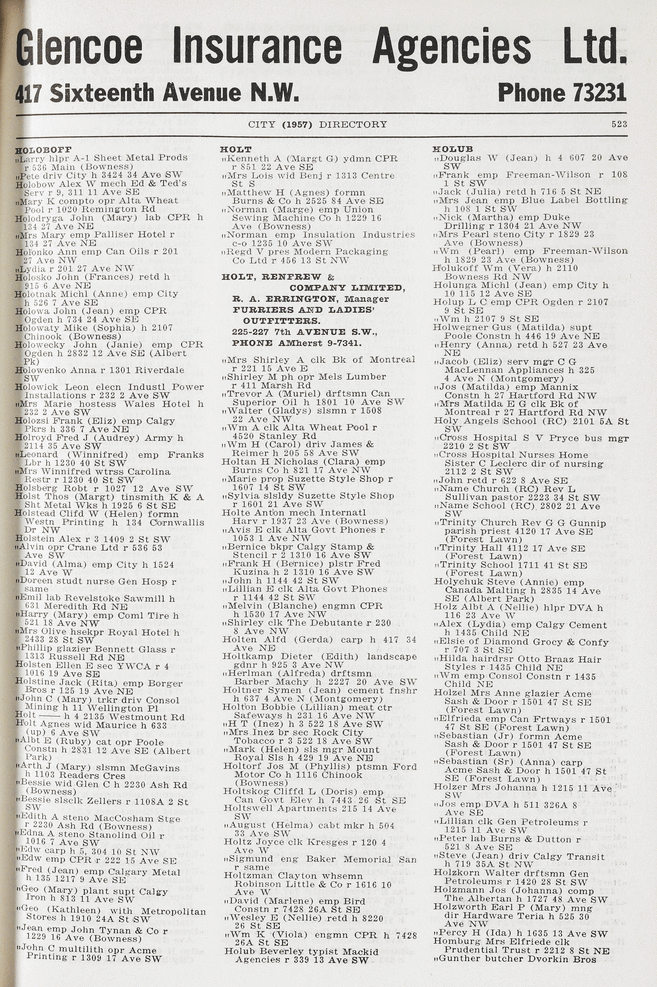 Glencoe Insurance Agencies Ltd.
417 Sixteenth Avenue N.W. Phone 73231
CITY (1957) DIRECTORY 523
HOLOBOFF
"Larry hlpr A-1 Sheet Metal Prods
r 536 Main (Bowness)
"Pete driv City h 3424 34 Ave SW
Holobow Alex W mech Ed & Ted's
Serv r 9, 311 11 Ave SE
"Mary K compto opr Alta Wheat
Pool r 1020 Remington Rd
Holodryga John (Mary) lab CPR h
134 27 Ave NE
"Mrs Mary emp Palliser Hotel r
134 27 Ave NE
Holonko Ann emp Can Oils r 201
27 Ave NW
"Lydia r 201 27 Ave NW
Holosko John (Frances) retd h
915 6 Ave NE
Holotnak Michl (Anne) emp City
h 526 7 Ave SE
Holowa John (Jean) emp CPR
Ogden h 734 24 Ave SE
Holowaty Mike (Sophia) h 2107
Chinook (Bowness)
Holowecky John (Janie) emp CPR
Ogden h 2832 12 Ave SE (Albert
Pk)
Holowenko Anna r 1301 Riverdale
SW
Holowick Leon elecn Industl Power
Installations r 232 2 Ave SW
"Mrs Marie hostess Wales Hotel h
232 2 Ave SW
Holozsi Frank (Eliz) emp Calgy
Pkrs h 336 7 Ave NE
Holroyd Fred J (Audrey) Army h
2114 35 Ave SW
"Leonard (Winnifred) emp Franks
Lbr h 1230 40 St SW
"Mrs Winnifred wtrss Carolina
Restr r 1230 40 St SW
Holsberg Robt r 1027 12 Ave SW
Holst Thos (Margt) tinsmith K & A
Sht Metal Wks h 1925 6 St SE
Holstead Clifd W (Helen) formn
Westn Printing h 134 Cornwallis
Dr NW
Holstein Alex r 3 1409 2 St SW
"Alvin opr Crane Ltd r 536 53
Ave SW
"David (Alma) emp City h 1524
12 Ave W
"Doreen studt nurse Gen Hosp r
same
"Emil lab Revelstoke Sawmill h
631 Meredith Rd NE
"Harry (Mary) emp Coml Tire h
521 18 Ave NW
"Mrs Olive hsekpr Royal Hotel h
2433 28 St SW
"Phillip glazier Bennett Glass r
1313 Russell Rd NE
Holsten Ellen E sec YWCA r 4
1016 19 Ave SE
Holstine Jack (Rita) emp Borger
Bros r 125 19 Ave NE
"John C (Mary) trkr driv Consol
Mining h 11 Wellington Pl
Holt — h 4 2135 Westmount Rd
Holt Agnes wid Maurice h 633
(up) 6 Ave SW
"Albt E (Ruby) cat opr Poole
Constn h 2831 12 Ave SE (Albert
Park)
"Arth J (Mary) slsmn McGavins
h 1103 Readers Cres
"Bessie wid Glen C h 2230 Ash Rd
(Bowness)
"Bessie slsclk Zellers r 1108A 2 St
SW
"Edith A steno MacCosham Stge
r 2230 Ash Rd (Bowness)
"Edna A steno Stanolind Oil r
1016 7 Ave SW
"Edw carp h 5, 304 10 St NW
"Edw emp CPR r 222 15 Ave SE
"Fred (Jean) emp Calgary Metal
h 135 1217 9 Ave SE
"Geo (Mary) plant supt Calgy
Iron h 813 11 Ave SW
"Geo (Kathleen) with Metropolitan
Stores h 1910 24A St SW
"Jean emp John Tynan & Co r
1229 16 Ave (Bowness)
"John C multilith opr Acme
Printing r 1309 17 Ave SW
HOLT
"Kenneth A (Margt G) ydmn CPR
r 851 22 Ave SE
"Mrs Lois wid Benj r 1313 Centre
St S
"Matthew H (Agnes) formn
Burns & Co h 2525 84 Ave SE
"Norman (Marge) emp Union
Sewing Machine Co h 1229 16
Ave (Bowness)
"Norman emp Insulation Industries
c-o 1235 10 Ave SW
"Regd V pres Modern Packaging
Co Ltd r 456 13 St NW
HOLT, RENFREW &
COMPANY LIMITED,
R. A. ERRINGTON, Manager
FURRIERS AND LADIES'
OUTFITTERS.
225-227 7th AVENUE S.W.,
PHONE AMherst 9-7341.
"Mrs Shirley A clk Bk of Montreal
r 221 15 Ave E
"Shirley M ph opr Mels Lumber
r 411 Marsh Rd
"Trevor A (Muriel) drftsmn Can
Superior Oil h 1801 10 Ave SW
"Walter (Gladys) slsmn r 1508
22 Ave NW
"Wm A clk Alta Wheat Pool r
4520 Stanley Rd
"Wm H (Carol) driv James &
Reimer h 205 58 Ave SW
Holtan H Nicholas (Clara) emp
Burns Co h 821 17 Ave NW
"Marie prop Suzette Style Shop r
1607 14 St SW
"Sylvia slsldy Suzette Style Shop
r 1601 21 Ave SW
Holte Anton mech Internatl
Harv r 1937 23 Ave (Bowness)
"Avis E clk Alta Govt Phones r
1053 1 Ave NW
"Bernice bkpr Calgy Stamp &
Stencil r 2 1310 16 Ave SW
"Frank H (Bernice) plstr Fred
Kuzina h 2 1310 16 Ave SW
"John h 1144 42 St SW
"Lillian E clk Alta Govt Phones
r 1144 42 St SW
"Melvin (Blanche) engmn CPR
h 1530 17 Ave NW
"Shirley clk The Debutante r 230
8 Ave NW
Holten Alfd (Gerda) carp h 417 34
Ave NE
Holtkamp Dieter (Edith) landscape
gdnr h 925 3 Ave NW
"Herlman (Alfreda) drftsmn
Barber Machy h 2227 20 Ave SW
Holtner Symen (Jean) cement fnshr
h 637 4 Ave N (Montgomery)
Holton Bobbie (Lillian) meat ctr
Safeways h 231 16 Ave NW
"H T (Inez) h 3 522 18 Ave SW
"Mrs Inez br sec Rock City
Tobacco r 3 522 18 Ave SW
"Mark (Helen) sls mgr Mount
Royal Sls h 429 19 Ave NE
Holtorf Jos M (Phyllis) ptsmn Ford
Motor Co h 1116 Chinook
(Bowness)
Holtskog Cliffd L (Doris) emp
Can Govt Elev h 7443 26 St SE
Holtswell Apartments 215 14 Ave
SW
"August (Helma) cabt mkr h 504
33 Ave SW
Holtz Joyce clk Kresges r 120 4
Ave W
"Sigmund eng Baker Memorial San
r same
Holtzman Clayton whsemn
Robinson Little & Co r 1616 10
Ave W
"David (Marlene) emp Bird
Constn r 7428 26A St SE
"Wesley E (Nellie) retd h 8220
26 St SE
"Wm K (Viola) engmn CPR h 7428
26A St SE
Holub Beverley typist Mackid
Agencies r 339 13 Ave SW
HOLUB
"Douglas W (Jean) h 4 607 20 Ave
SW
"Frank emp Freeman-Wilson r 108
1 St SW
"Jack (Julia) retd h 716 5 St NE
"Mrs Jean emp Blue Label Bottling
h 108 1 St SW
"Nick (Martha) emp Duke
Drilling r 1304 21 Ave NW
"Mrs Pearl steno City r 1829 23
Ave (Bowness)
"Wm (Pearl) emp Freeman-Wilson
h 1829 23 Ave (Bowness)
Holukoff Wm (Vera) h 2110
Bowness Rd NW
Holunga Michl (Jean) emp City h
10 115 12 Ave SW
Holup L C emp CPR Ogden r 2107
9 St SE
"Wm h 2107 9 St SE
Holwegner Gus (Matilda) supt
Poole Constn h 446 19 Ave NE
"Henry (Anna) retd h 527 23 Ave
NE
"Jacob (Eliz) serv mgr C G
MacLennan Appliances h 325
4 Ave N (Montgomery)
"Jos (Matilda) emp Mannix
Constn h 27 Hartford Rd NW
"Mrs Matilda E G clk Bk of
Montreal r 27 Hartford Rd NW
Holy Angels School (RC) 2101 5A St
SW
"Cross Hospital S V Pryce bus mgr
2210 2 St SW
"Cross Hospital Nurses Home
Sister C Leclerc dir of nursing
2112 2 St SW
"John retd r 622 8 Ave SE
"Name Church (RC) Rev L
Sullivan pastor 2223 34 St SW
"Name School (RC) 2802 21 Ave
SW
"Trinity Church Rev G G Gunnip
parish priest 4120 17 Ave SE
(Forest Lawn)
"Trinity Hall 4112 17 Ave SE
(Forest Lawn)
"Trinity School 1711 41 St SE
(Forest Lawn)
Holychuk Steve (Annie) emp
Canada Malting h 2835 14 Ave
SE (Albert Park)
Holz Albt A (Nellie) hlpr DVA h
116 23 Ave W
"Alex (Lydia) emp Calgy Cement
h 1435 Child NE
"Elsie of Diamond Grocy & Confy
r 707 3 St SE
"Hilda hairdrsr Otto Braaz Hair
Styles r 1435 Child NE
"Wm emp Consol Constn r 1435
Child NE
Holzel Mrs Anne glazier Acme
Sash & Door r 1501 47 St SE
(Forest Lawn)
"Elfrieda emp Can Frtways r 1501
47 St SE (Forest Lawn)
"Sebastian (Jr) formn Acme
Sash & Door r 1501 47 St SE
(Forest Lawn)
"Sebastian (Sr) (Anna) carp
Acme Sash & Door h 1501 47 St
SE (Forest Lawn)
Holzer Mrs Johanna h 1215 11 Ave
SW
"Jos emp DVA h 511 326A 8
Ave SE
"Lillian clk Gen Petroleums r
1215 11 Ave SW
"Peter lab Burns & Dutton r
521 8 Ave SE
"Steve (Jean) driv Calgy Transit
h 719 35A St NW
Holzkorn Walter drftsmn Gen
Petroleums r 1420 28 St SW
Holzmann Jos (Johanna) comp
The Albertan h 1727 48 Ave SW
Holzworth Earl P (Mary) mng
dir Hardware Teria h 525 30
Ave NW
"Percy H (Ida) h 1635 13 Ave SW
Homburg Mrs Elfriede clk
Prudential Trust r 2212 8 St NE
"Gunther butcher Dvorkin Bros